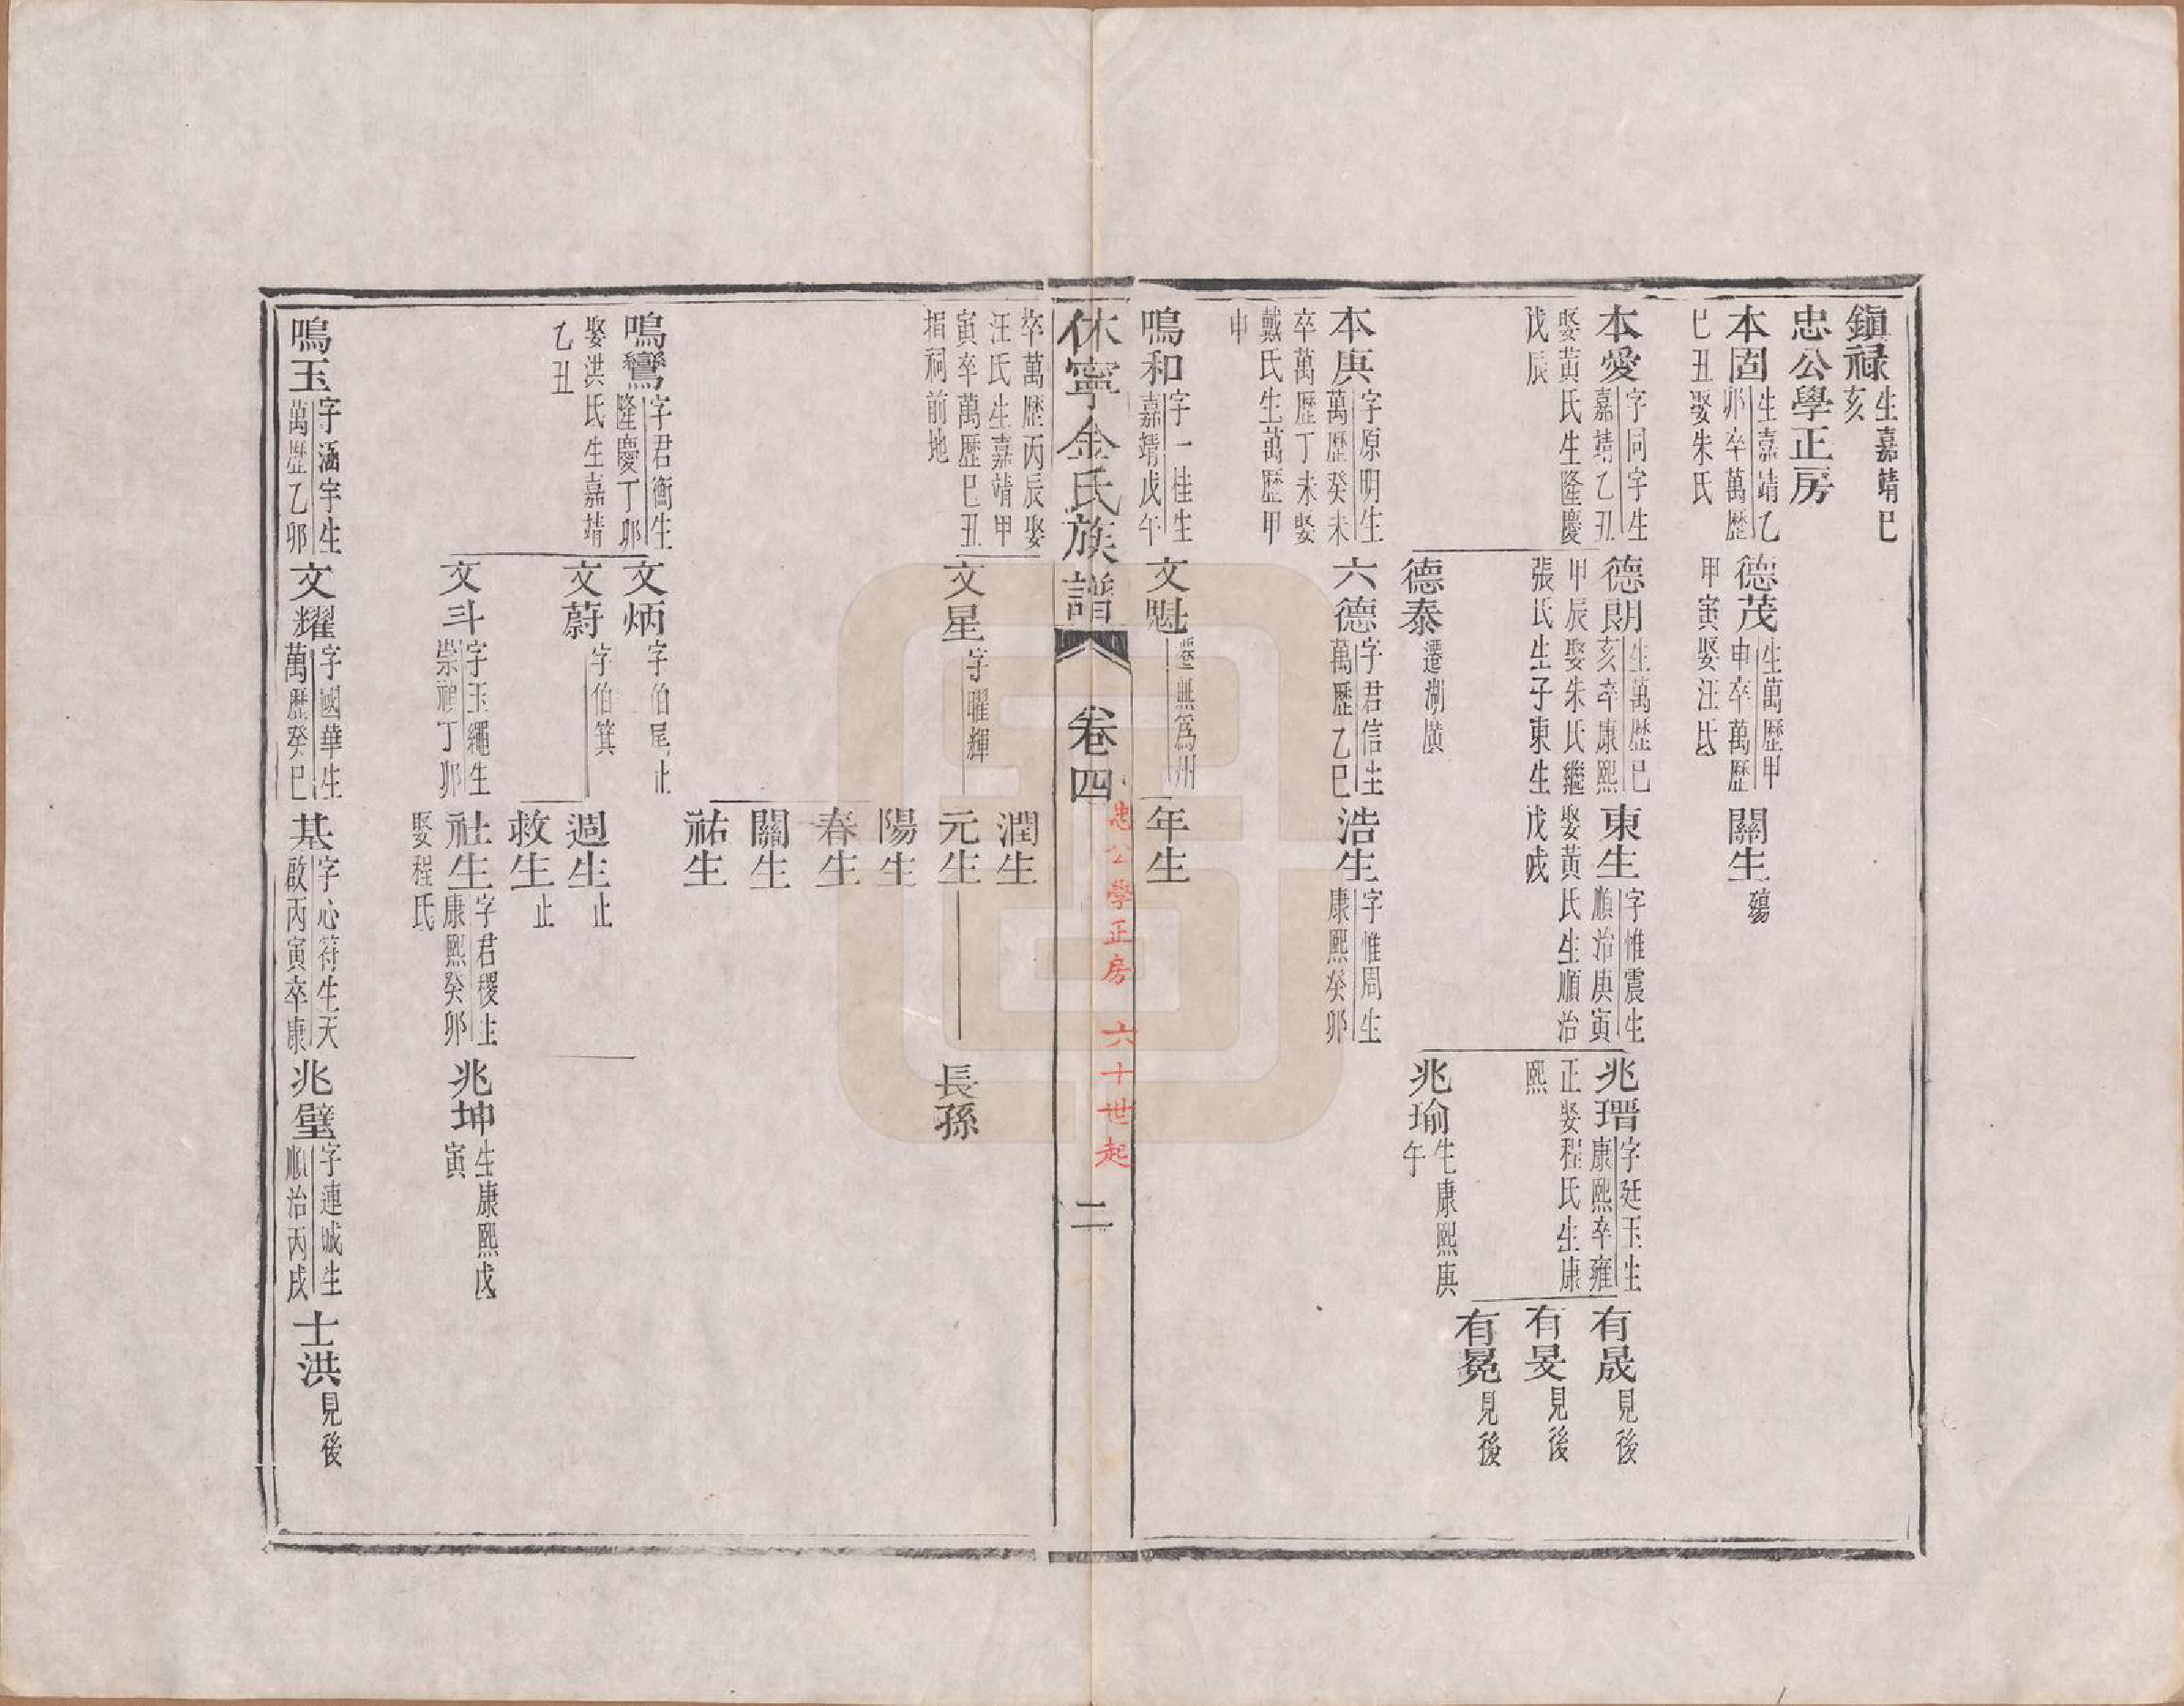 鎮祿生嘉靖己亥
忠公學正房
本固生嘉靖乙卯卒萬歷己丑娶朱氏
德茂生萬歷甲申卒萬歷甲寅娶汪氏
關生殤
本愛字同字生嘉靖乙丑娶黃氏生隆慶戊辰
德朗生萬歷己亥卒康熙甲辰娶朱氏繼張氏生子東生
東生字惟震生順治庚寅娶黃氏生順治戊戌
兆瑨字廷玉生康熙卒雍正娶程氏生康熙
有晟見後
有旻見後
有冕見後
兆瑜生康熙庚午
德泰遷湖廣
本庚字原明生萬歷癸未卒萬歷丁未娶戴氏生萬歷甲申
六德字君信生萬歷乙巳
浩生字惟周生康熙癸卯
鳴和字一桂生嘉靖戊午
文魁遷無為州
年生
休寧金氏族譜
卷四
忠公學正房 六十世起
二
卒萬歷丙辰娶汪氏生嘉靖甲寅卒萬歷己丑捐祠前地
文星字曜輝
潤生
元生
長孫
陽生
春生
關生
祐生
鳴鸞字君衡生隆慶丁卯娶洪氏生嘉靖乙丑
文炳字伯尾止
文蔚字伯箕
週生止
救生止
文斗字玉繩生崇禎丁卯
社生字君稷生康熙癸卯娶程氏
兆坤生康熙戊寅
鳴玉字涵宇生萬歷乙卯
文耀字國華生萬歷癸巳
基字心符生天啟丙寅卒康
兆璧字連城生順治丙戌
士洪見後